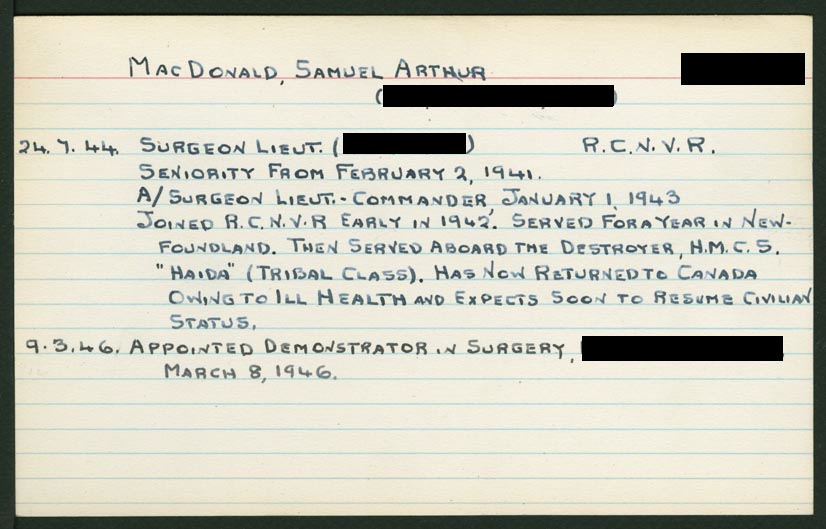 MACDONALD, SAMUEL ARTHUR
( )
24.7.44. SURGEON LIEUT. ( ) R.C.N.V.R.
SENIORITY FROM FEBRUARY 2, 1941.
A/SURGEON LIEUT.-COMMANDER JANUARY 1, 1943
JOINED R.C.N.V.R EARLY IN 1942. SERVED FOR A YEAR IN NEW-
FOUNDLAND. THEN SERVED ABOARD THE DESTROYER, H.M.C.S.
"HAIDA" (TRIBAL CLASS). HAS NOW RETURNED TO CANADA
OWING TO ILL HEALTH AND EXPECTS SOON TO RESUME CIVILIAN
STATUS.
9.3.46. APPOINTED DEMONSTRATOR IN SURGERY,
MARCH 8, 1946.